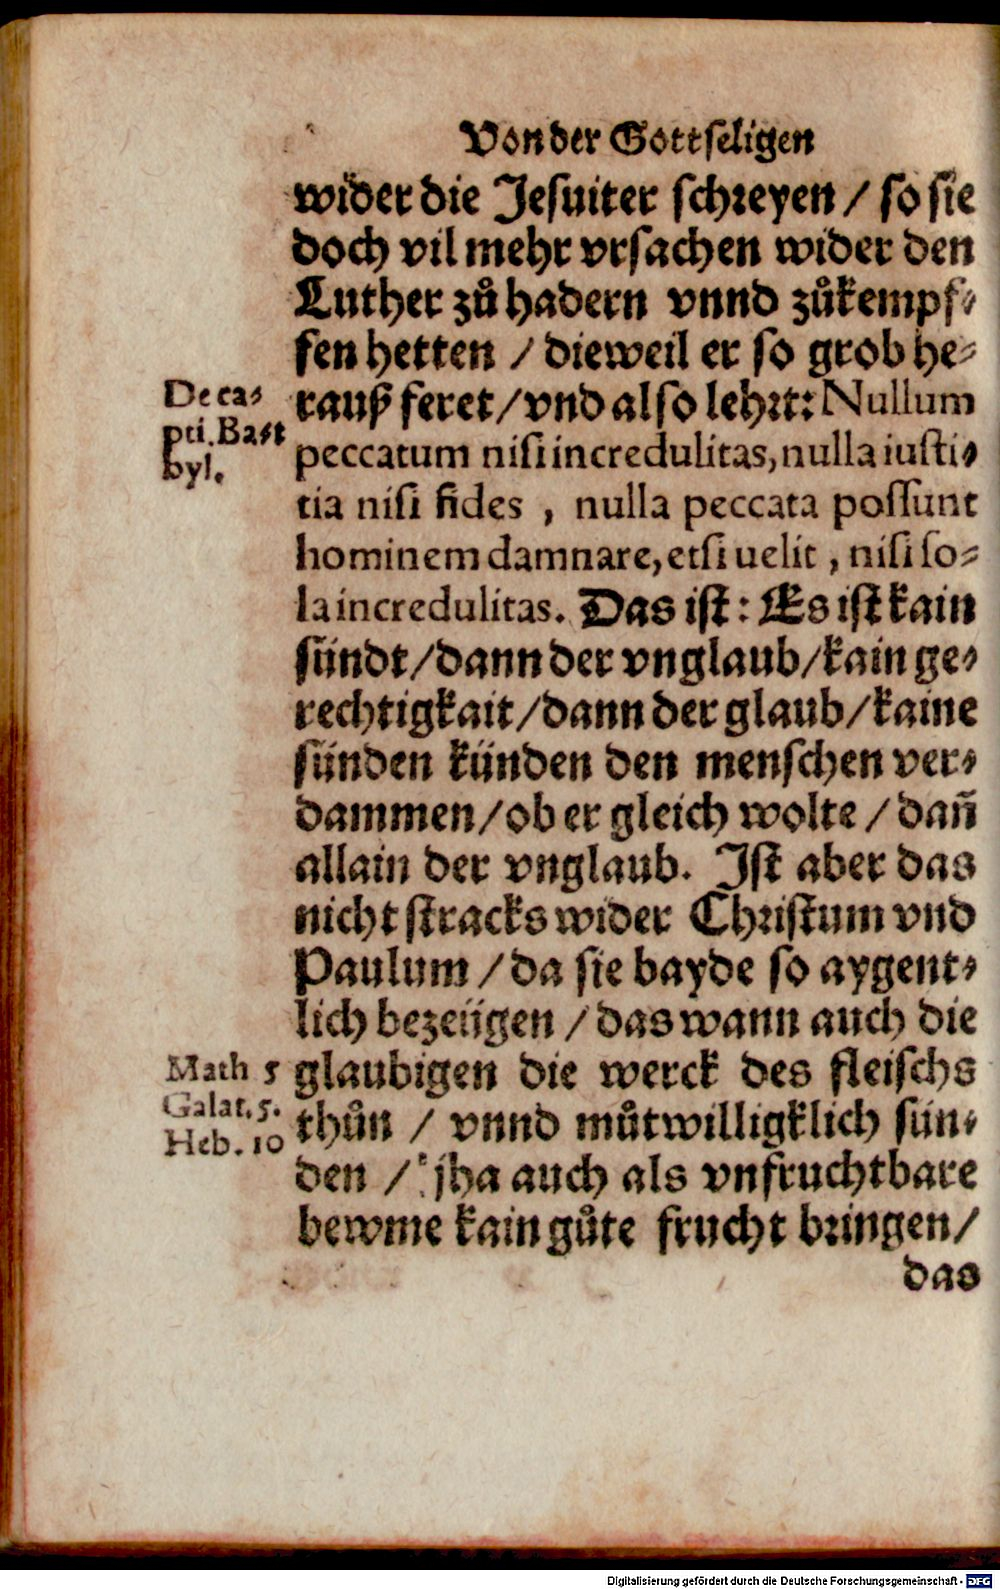 Von der Gottseligen
wider die Jesuiter schreyen / so sie
doch vil mehr vrsachen wider den
Luther zů hadern vnnd zůkempf-
fen hetten / dieweil er so grob he-
De ca-
pti. Baʒt
byl.
rauß feret / vnd also lehrt: Nullum
peccatum nisi incredulitas, nulla iusti-
tia nisi fides , nulla peccata possunt
hominem damnare, etsi uelit , nisi so-
la incredulitas. Das ist: Es ist kain
sündt / dann der vnglaub / kain ge-
rechtigkait / dann der glaub / kaine
sünden künden den menschen ver-
dammen / ob er gleich wolte / dañ
allain der vnglaub. Ist aber das
nicht stracks wider Christum vnd
Paulum / da sie bayde so aygent-
lich bezeügen / das wann auch die
Math 5
Galat. 5.
Heb. 10
glaubigen die werck des fleischs
thůn / vnnd můtwilligklich sün-
den / jha auch als vnfruchtbare
bewme kain gůte frucht bringen /
das
Digitalisierung gefördert durch die Deutsche Forschungsgemeinschaft - DFG